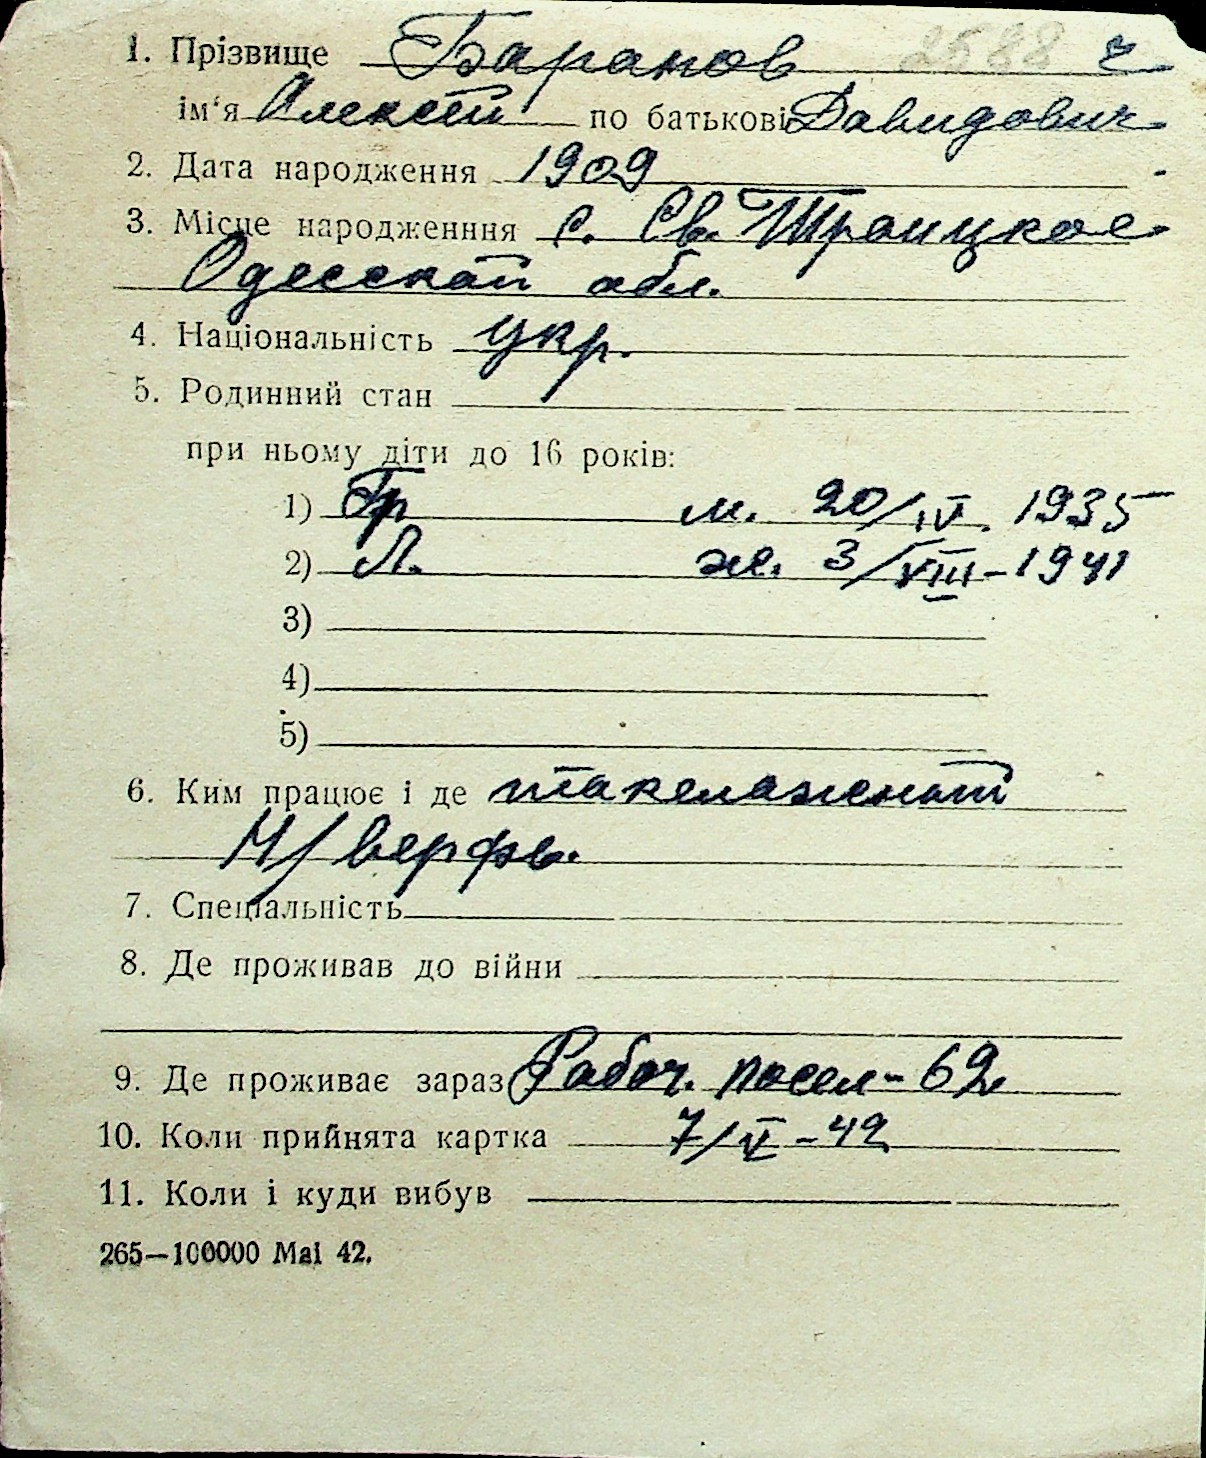 1. Прізвище Баранов 2588 г
ім'я Алексей по батькові Давидович
2. Дата народження 1909
3. Місце народженння с. Св. Троицкое
Одесской обл.
4. Національність укр.
5. Родинний стан
при ньому діти до 16 років:
1) Гр м. 20/IV. 1935
2) Л. ж. 3/VIII-1941
3)
4)
5)
6. Ким працює і де такелажент
М/верфь.
7. Спеціальність
8. Де проживав до війни
9. Де проживає зараз Рабоч. посел-62
10. Коли прийнята картка 7/V-42
11. Коли і куди вибув
265—100000 Mai 42.